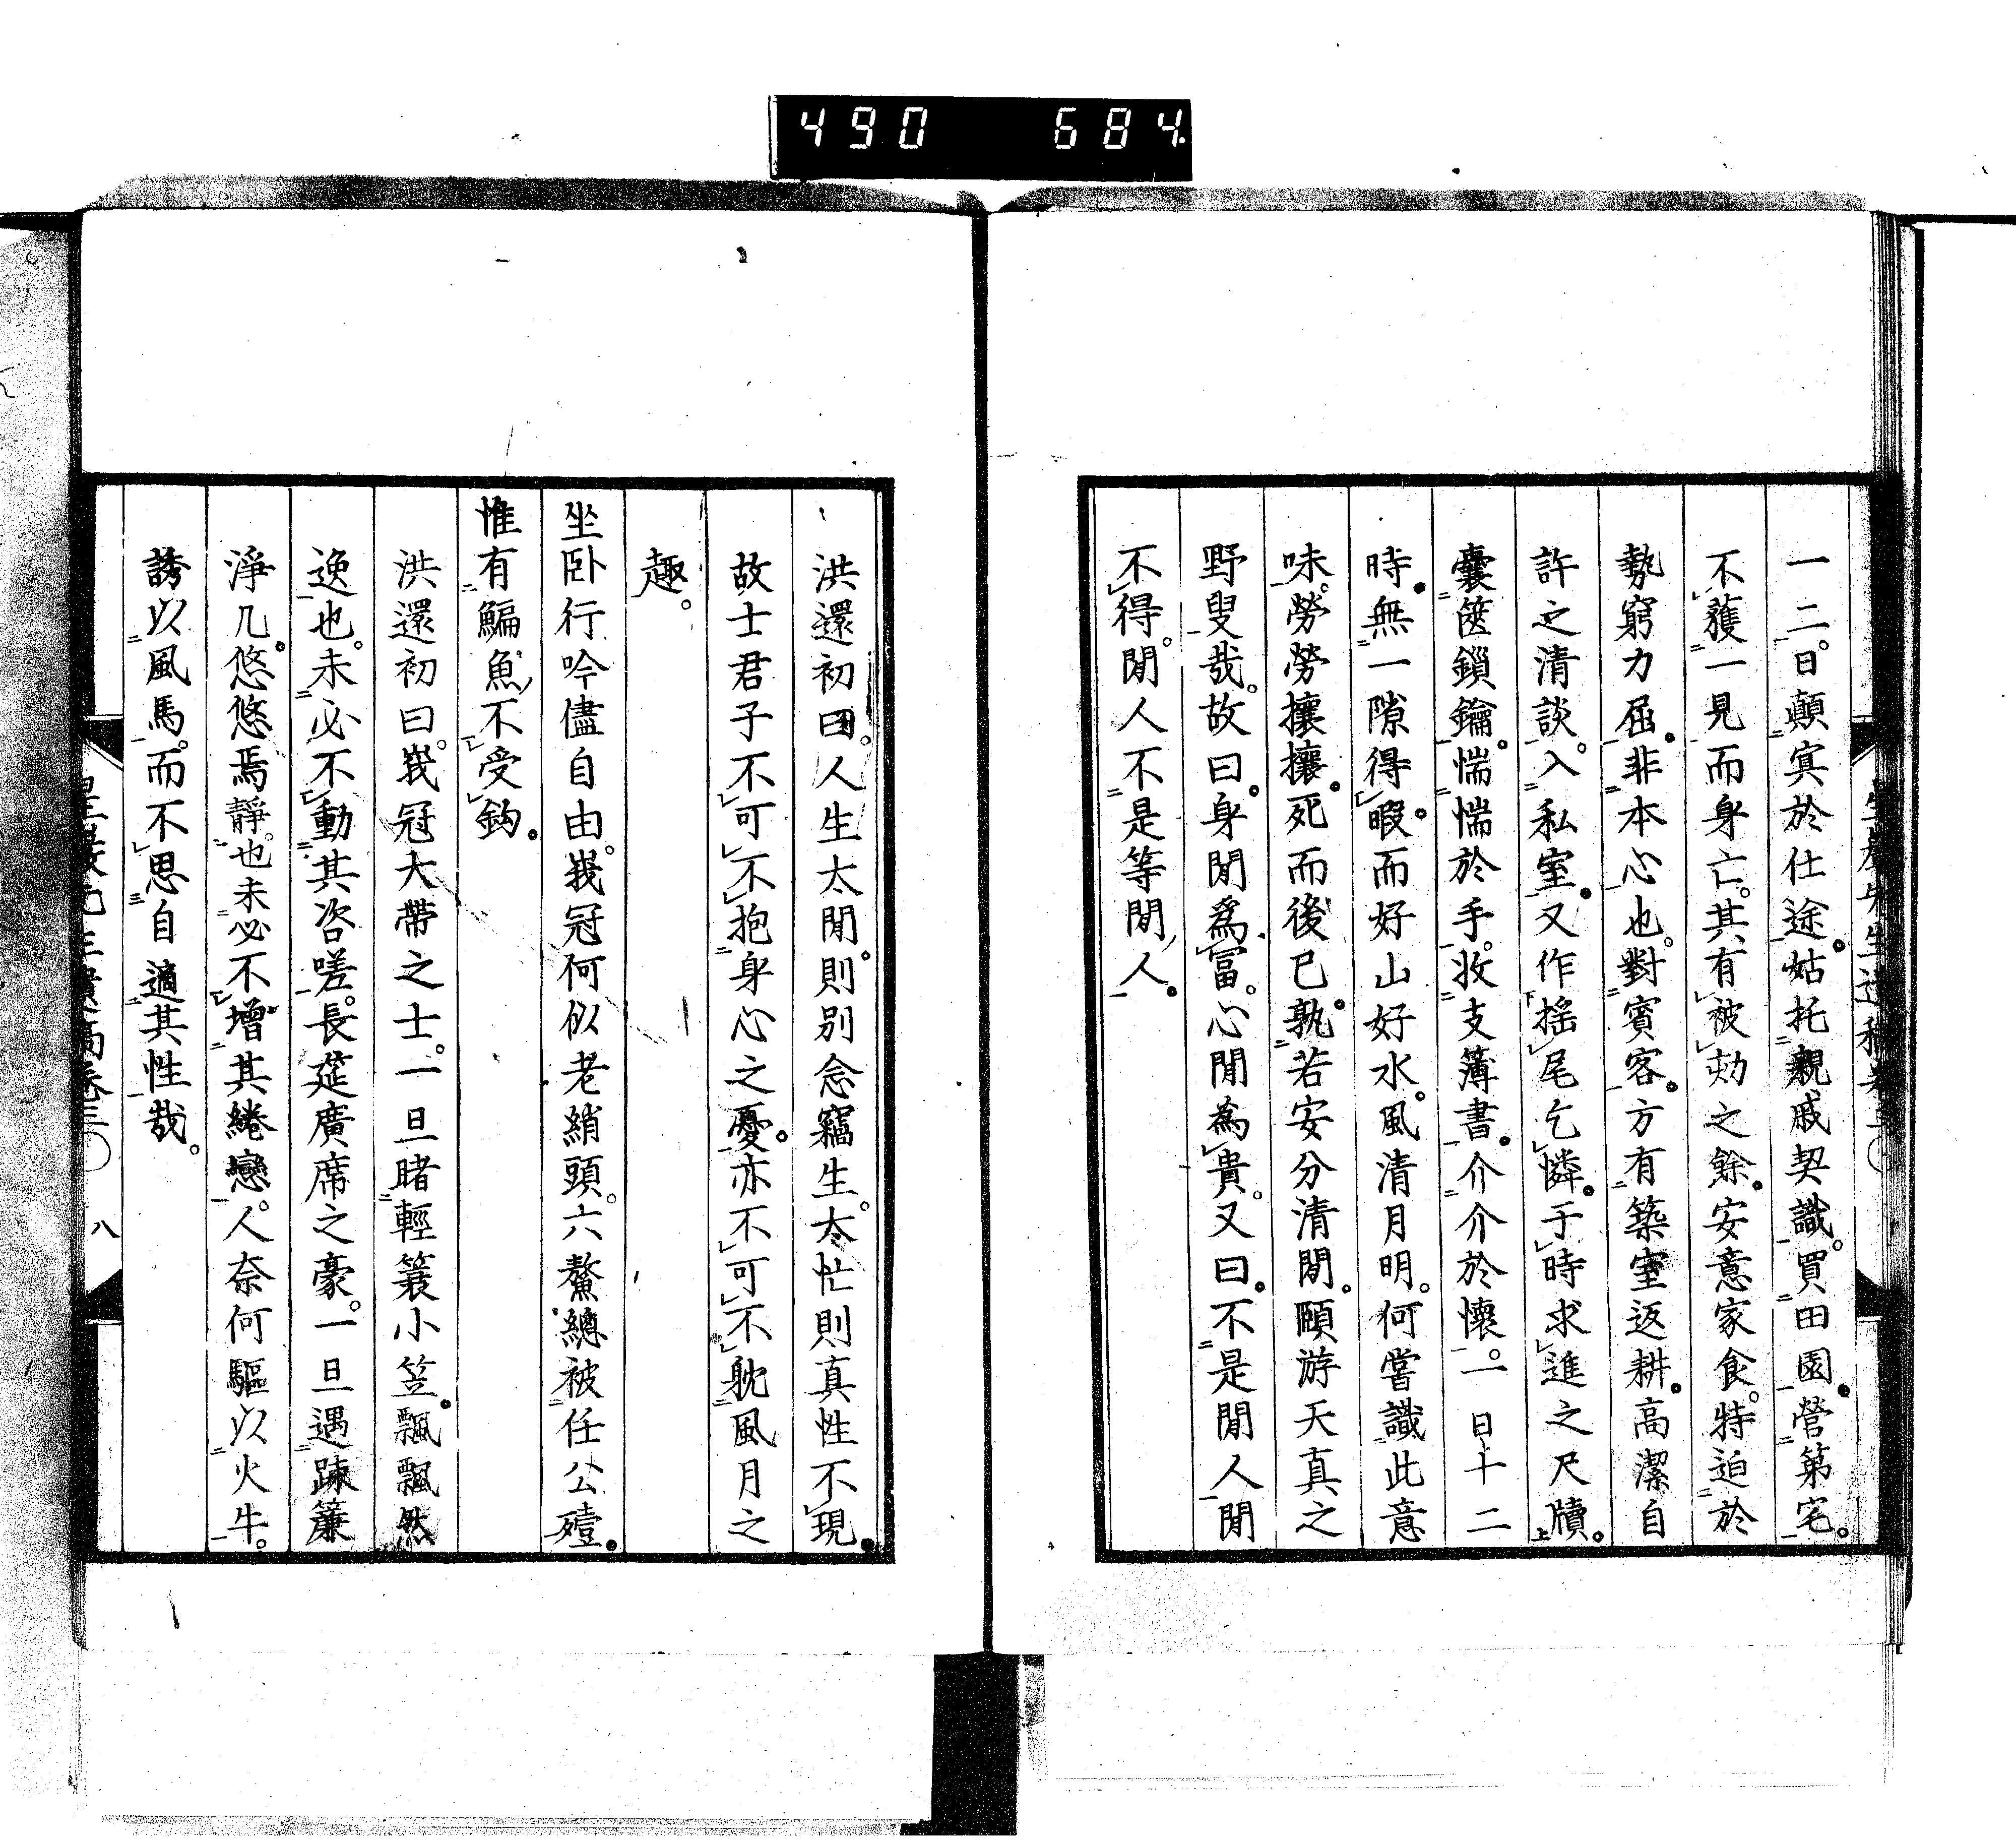 490 684
一二。日顛寞於仕途。姑托親戚契識。買田園。營第宅。
不獲一見而身亡。其有被劾之餘。安意家食。特迫於
勢窮力屈。非本心也。對賓客。方有築室返耕。高潔自
許之清談。入私室。又作搖尾乞憐。于時求進之尺牘。
囊篋鎖鑰。惴惴於手。收支簿書。介介於懷。一日十二
時。無一隙得暇。而好山好水。風清月明。何嘗識此意
味。勞勞攘攘。死而後已。孰若安分清閒。頤游天真之
野叟哉。故曰。身閒為富。心閒為貴。又曰。不是閒人閒
不得。閒人不是等閒人。
洪還初曰。人生太閒。則別念竊生。太忙則真性不現。
故士君子不可不抱身心之憂。亦不可不耽風月之
趣。
坐臥行吟儘自由。峩冠何似老綃頭。六鰲總被任公殪。
惟有鯿魚不受鈎。
洪還初曰。峩冠大帶之士。一旦睹輕簑小笠。飄飄然
逸也。未必不動其咨嗟。長筵廣席之豪。一旦遇疎簾
淨几。悠悠焉靜也。未必不增其綣戀。人奈何驅以火牛。
誘以風馬。而不思自適其性哉。
八